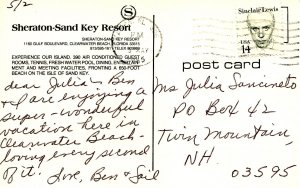 5/2
Sheraton-Sand Key Resort
SHERATON-SAND KEY RESORT
1160 GULF BOULEVARD, CLEARWATER BEACH, FLORIDA 33515
EXPERIENCE OUR ISLAND. 390 AIR CONDITIONED GUEST
ROOMS, TENNIS, FRESH WATER POOL, DINING, ENTERTAIN-
MENT AND MEETING FACILITIES, FRONTING A 650-FOOT
BEACH ON THE ISLE OF SAND KEY.
dear Julia - Ben
& I are enjoying a
super-wonderful
vacation here in
Clearwater Beach -
loving every second
of it! Love, Ben & Gail
Sinclair Lewis
USA
14
post card
Ms Julia Sancineto
PO Box 42
Twin Mountain,
NH
03595